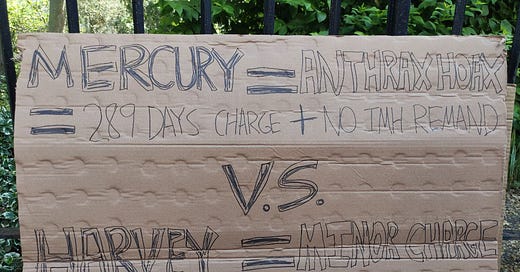 MERCURY = ANTHRAX HOAX
= 289 DAYS CHARGE + NO IMH REMAND
V.S.
HARVEY = MINOR CHARGE